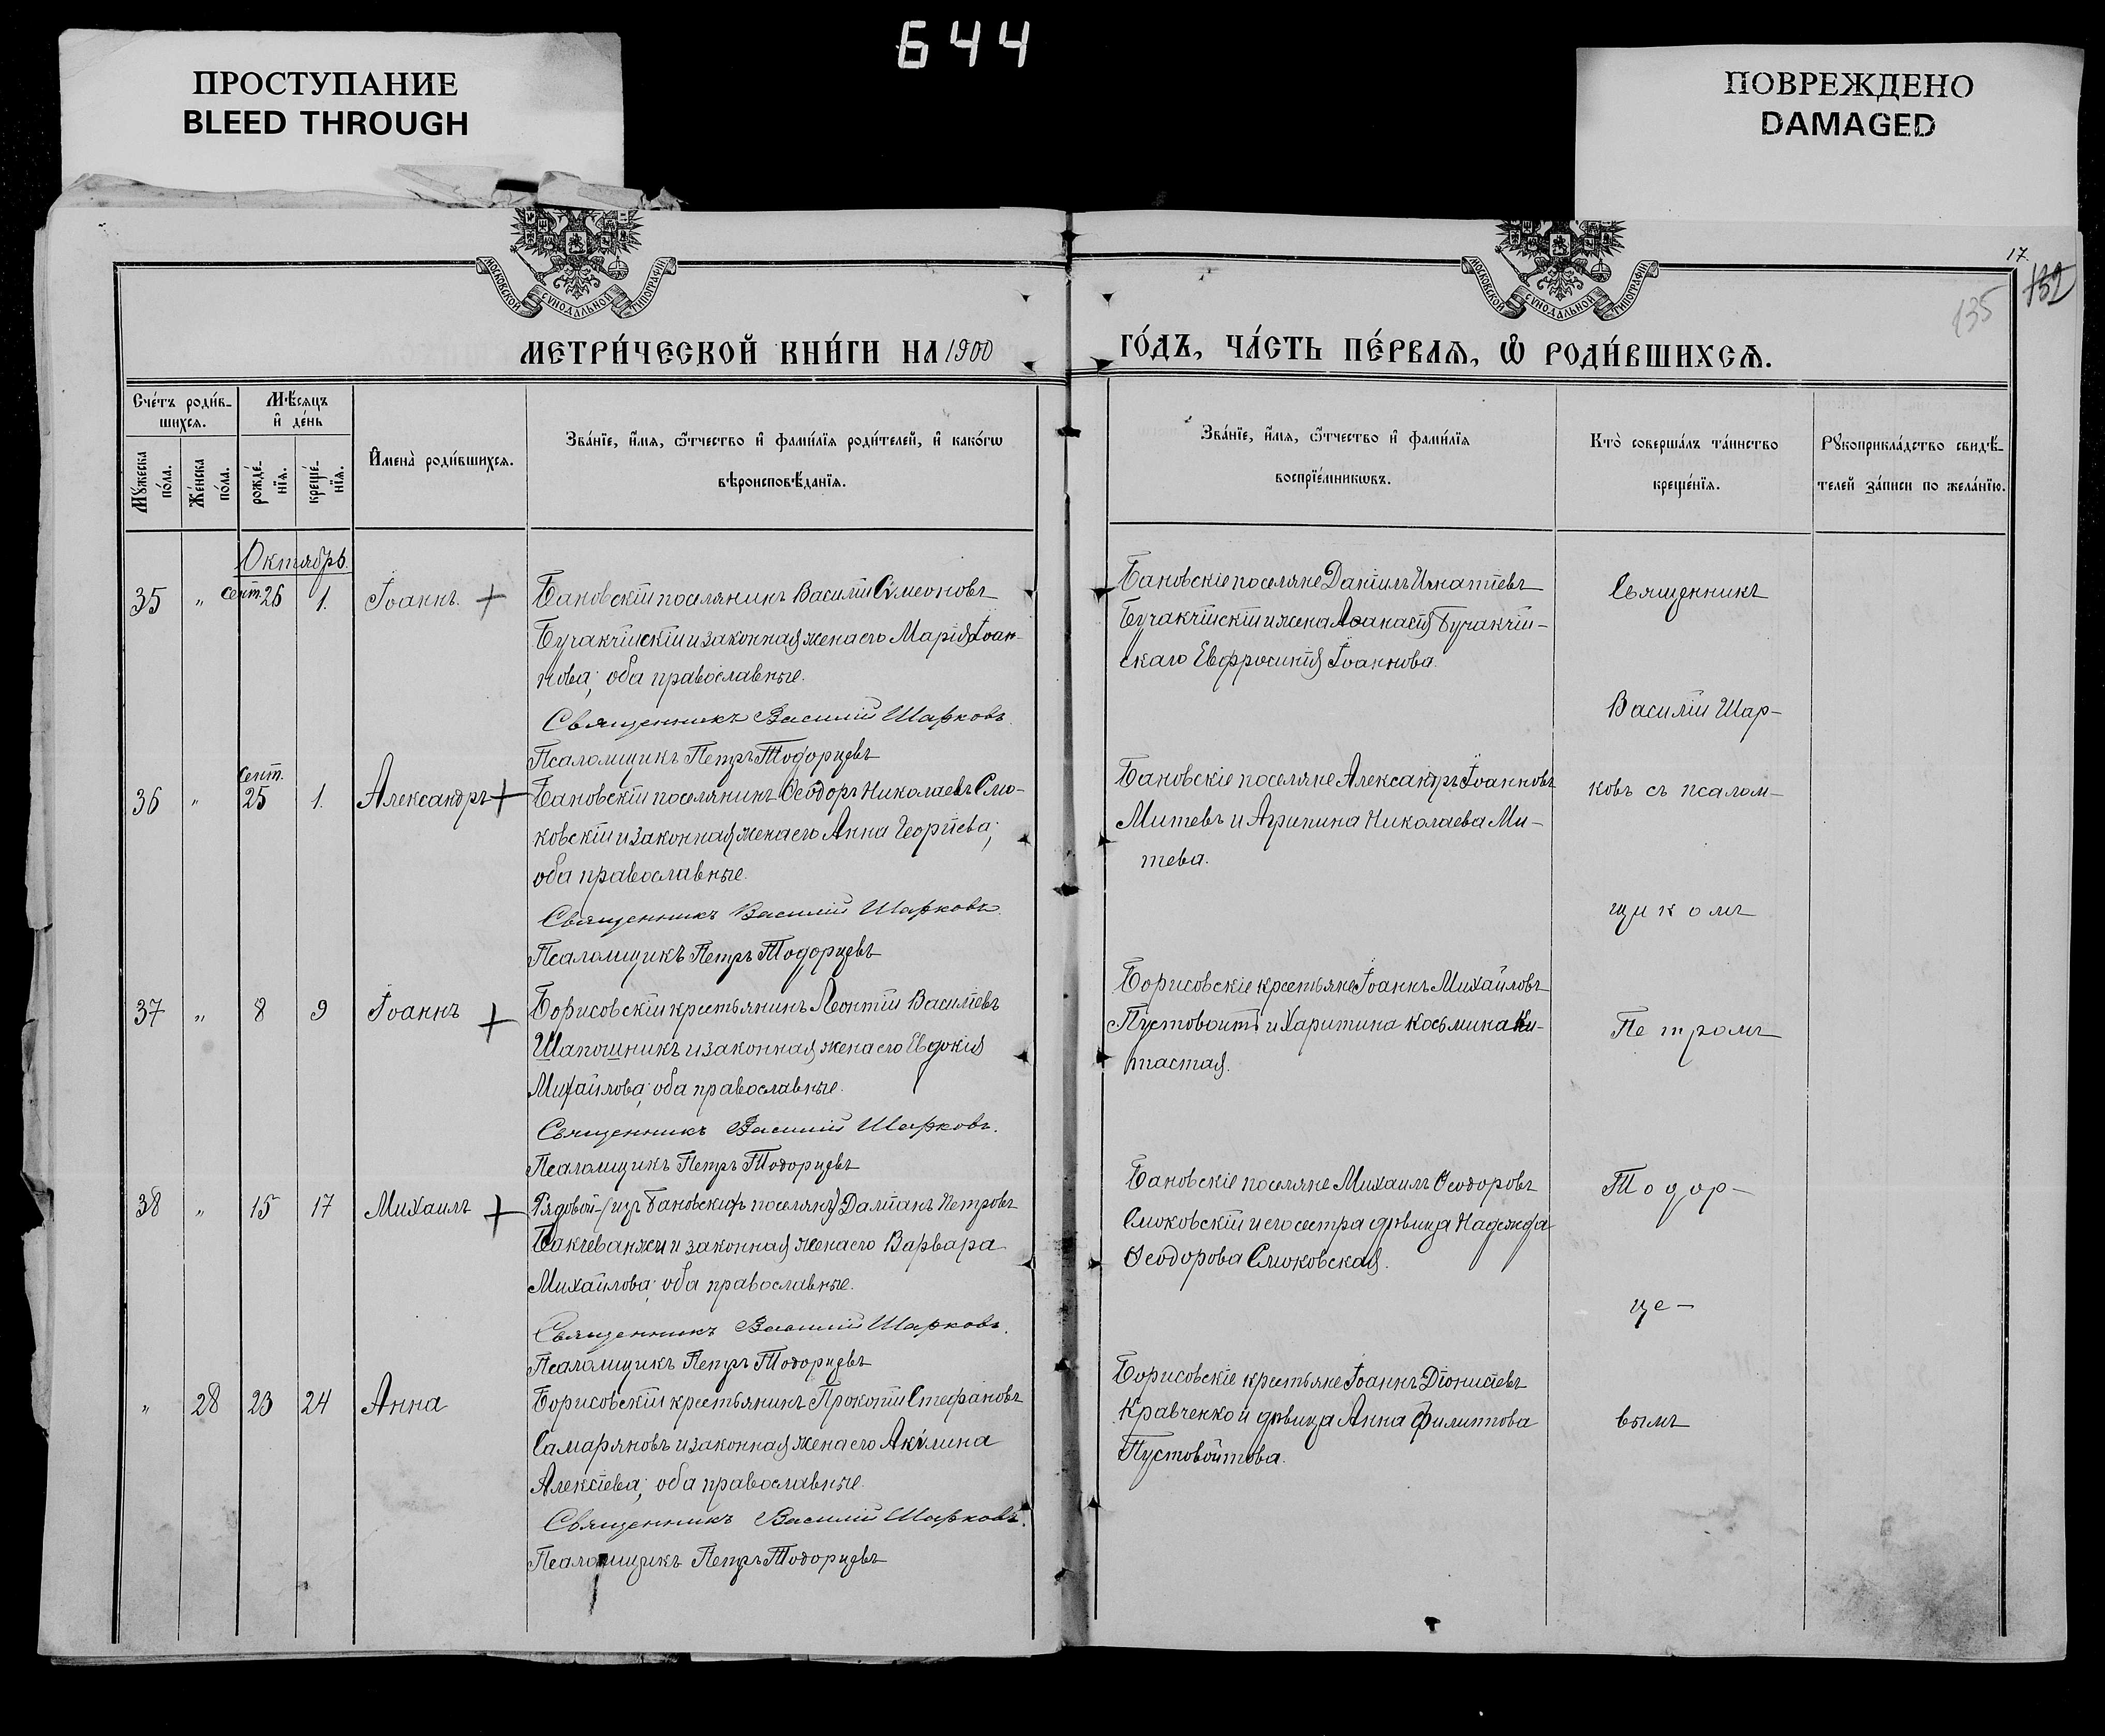 644
ПРОСТУПАНИЕ
BLEED THROUGH
ПОВРЕЖДЕНО
DAMAGED
МОСКОВСКОЙ СѴНОДАЛЬНОЙ ТИПОГРАФІИ
МОСКОВСКОЙ СѴНОДАЛЬНОЙ ТИПОГРАФІИ
17.
132
135
МЕТРИ́ЧЕСКОЙ КНИ́ГИ НА 1900
ГО́ДЪ, ЧА́СТЬ ПЕ́РВАѦ, Ѿ РОДИ́ВШИХСѦ.
Сче́тъ роди́в-
шихсѧ.
Мѣ́сяцъ
и҆ де́нь
Мꙋ́жеска
по́ла.
Же́нска
по́ла.
рожде́-
нїѧ.
креще́-
нїѧ.
И҆мена̀ роди́вшихсѧ.
Зва́нїе, и҆́мѧ, ѻ҆́тчество и҆ фами́лїѧ роди́телей, и҆ како́гѡ
вѣроисповѣ́данїѧ.
Зва́нїе, и҆́мѧ, ѻ҆́тчество и҆ фами́лїѧ
воспрїе́мникѡвъ.
Кто̀ соверша́лъ та́инство
креще́нїѧ.
Рꙋкоприкла́дство свидѣ́-
телей за́писи по жела́нїю.
Октябрь.
35 " Сент. 26 1. Іоаннъ.
Бановскій поселянинъ Василій Сѵмеоновъ
Бучакчійскій и законная жена его Марія Іоан-
нова; оба православные.
Священникъ Василій Шарковъ.
Псаломщикъ Петръ Тодорцевъ
Бановскіе поселяне Даніилъ Игнатіевъ
Бучакчійскій и жена Аѳанасія Бучакчій-
скаго Евфросинія Іоаннова.
36 " Сент. 25 1. Александръ
Бановскій поселянинъ Ѳеодоръ Николаевъ Смо-
ковскій и законная жена его Анна Георгіева;
оба православные.
Священникъ Василій Шарковъ.
Псаломщикъ Петръ Тодорцевъ
Бановскіе поселяне Александръ Іоанновъ
Митевъ и Агрипина Николаева Ми-
тева.
37 " 8 9 Іоаннъ
Борисовскій крестьянинъ Леонтій Василіевъ
Шапошникъ и законная жена его Евдокія
Михайлова; оба православные.
Священникъ Василій Шарковъ.
Псаломщикъ Петръ Тодорцевъ
Борисовскіе крестьяне Іоаннъ Михайловъ
Пустовойтъ и Харитина Косьмина
тастая.
38 " 15 17 Михаилъ
Рядовой (изъ Бановскихъ поселянъ) Даміанъ Петровъ
Бакчеванжи и законная жена его Варвара
Михайлова; оба православные.
Священникъ Василій Шарковъ.
Псаломщикъ Петръ Тодорцевъ
Бановскіе поселяне Михаилъ Ѳеодоровъ
Смоковскій и его сестра дѣвица Надежда
Ѳеодорова Смоковская.
" 28 23 24 Анна
Борисовскій крестьянинъ Прокопій Стефановъ
Самаряновъ и законная жена его Акѵлина
Алексіева; оба православные.
Священникъ Василій Шарковъ.
Псаломщикъ Петръ Тодорцевъ
Борисовскіе крестьяне Іоаннъ Діонисіевъ
Кравченко и дѣвица Анна Филиппова
Пустовойтова.
Священникъ
Василій Шар-
ковъ съ псалом-
щикомъ
Петромъ
Тодор-
це-
вымъ